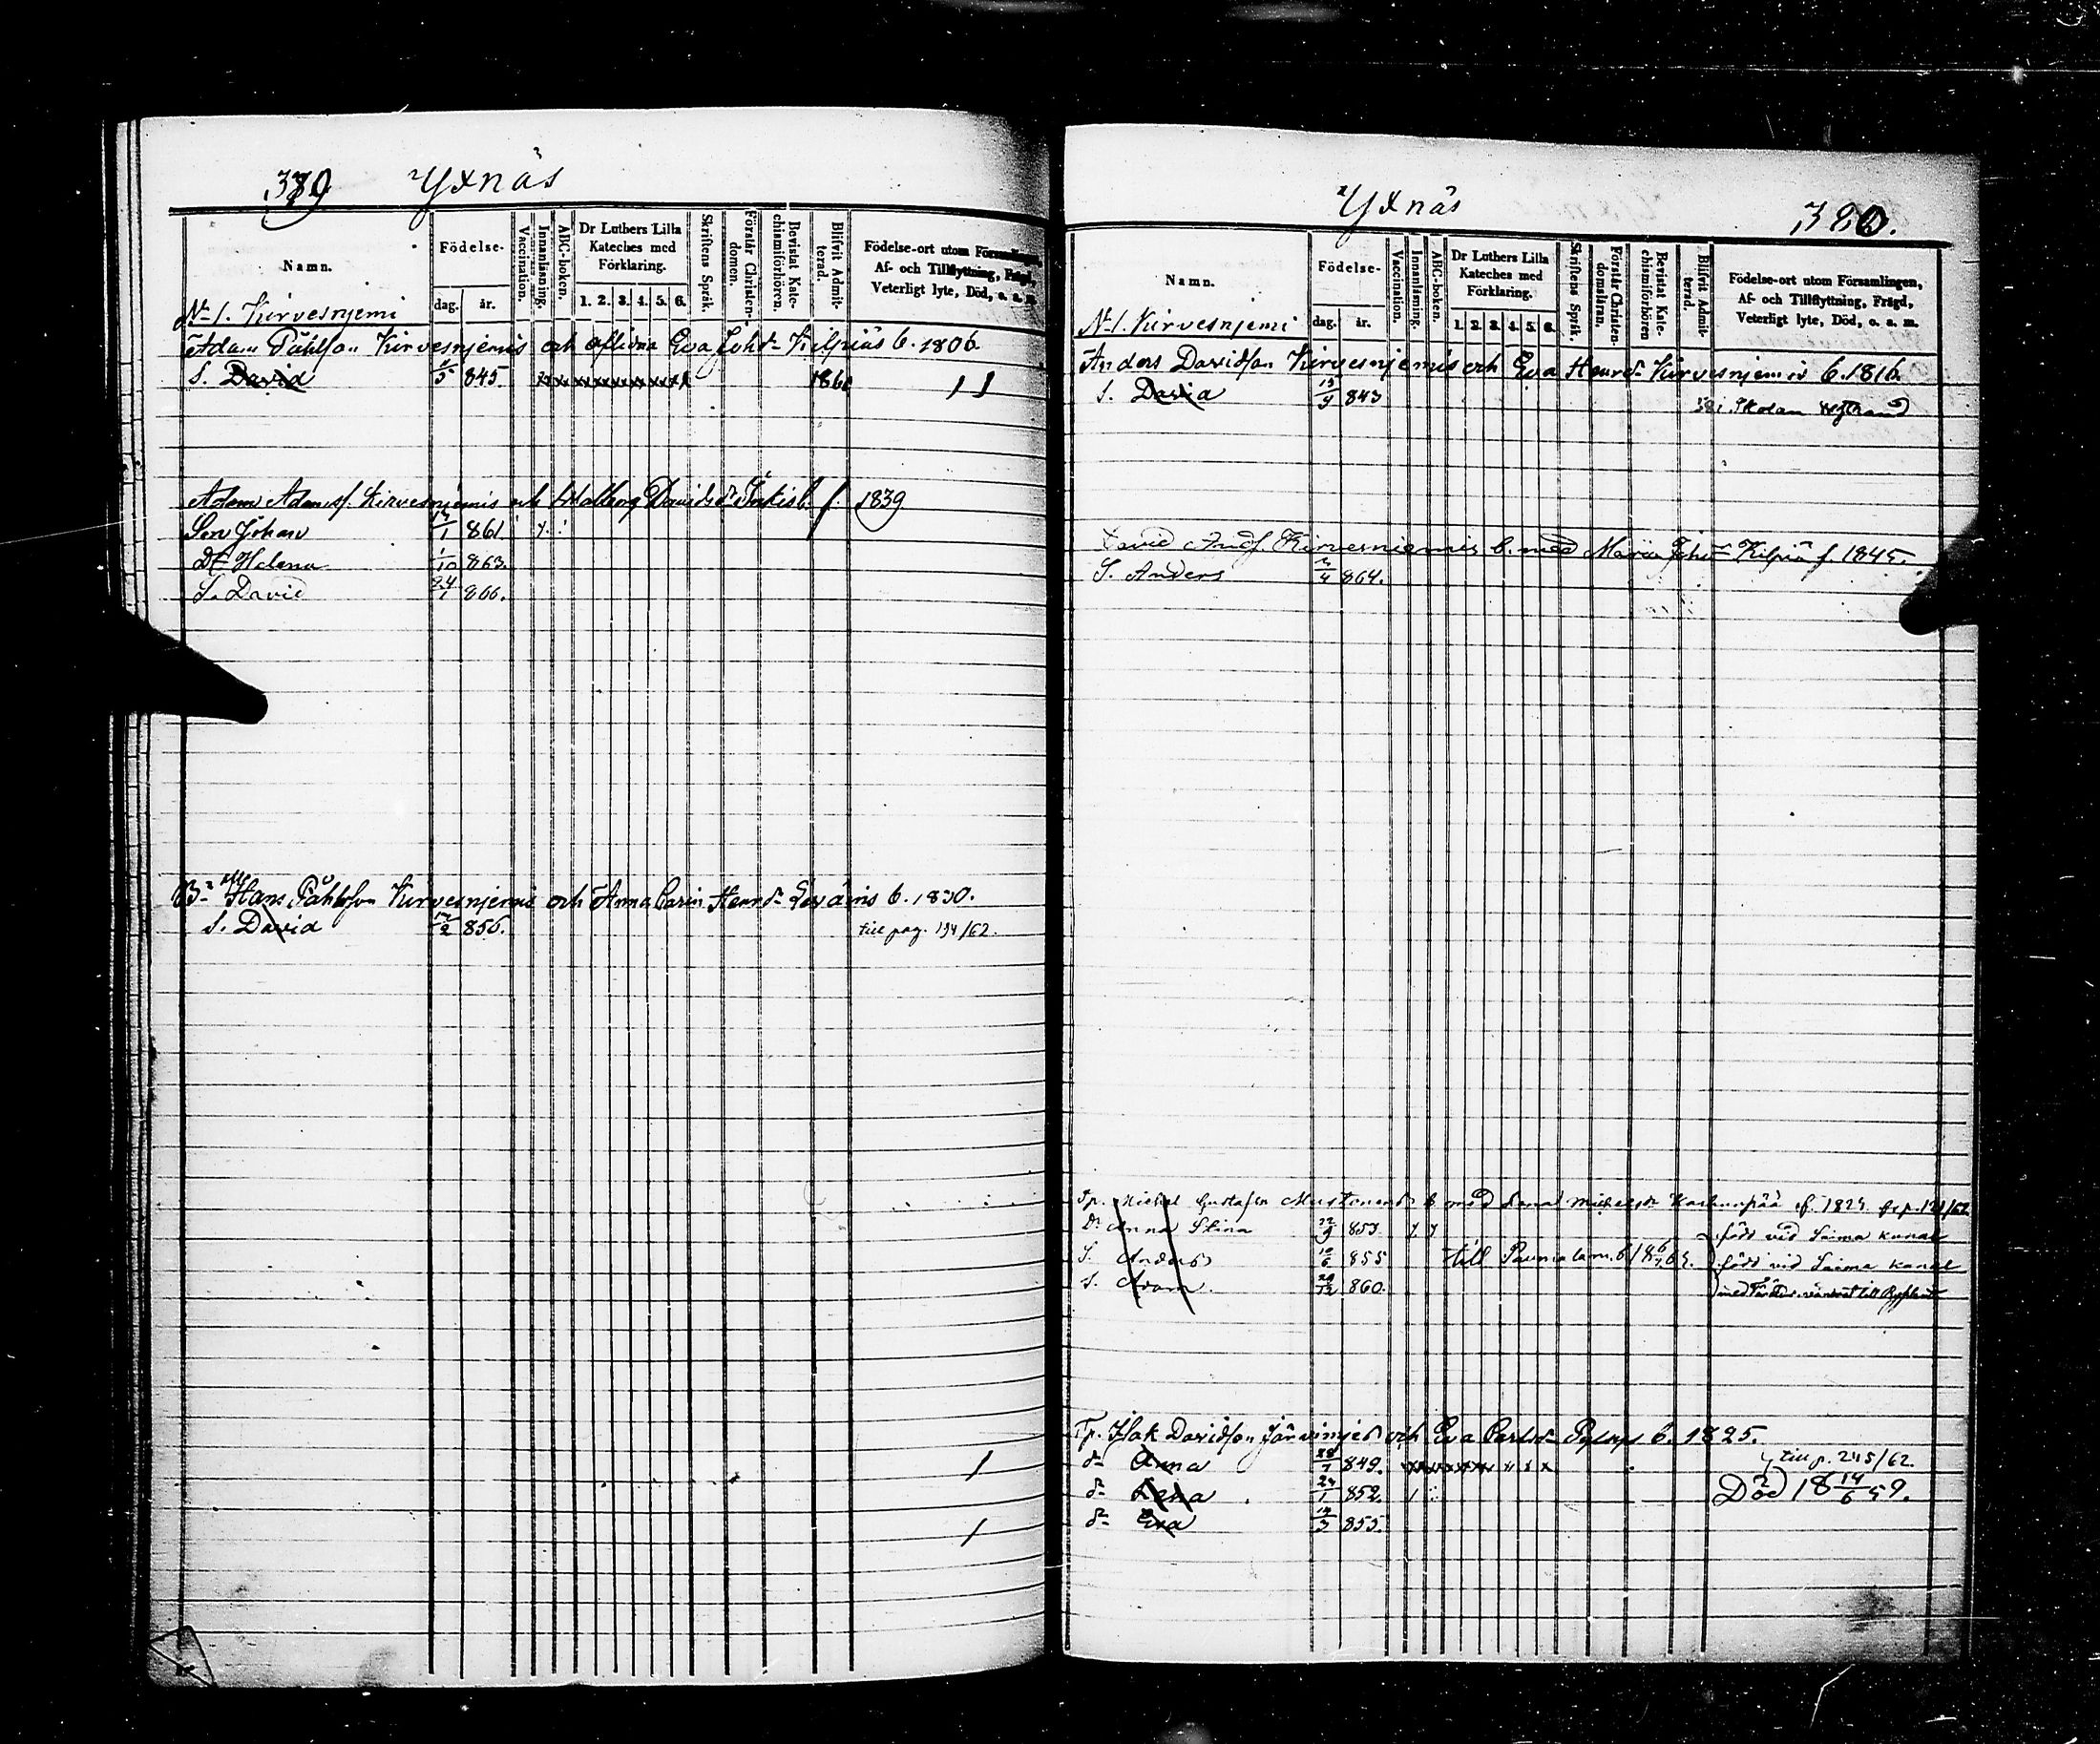 379 Yxnäs
Namn.
Födelse-
dag. år.
Vaccination.
Innanläsning.
ABC-boken.
Dr Luthers Lilla
Kateches med
Förklaring.
1. 2. 3. 4. 5. 6.
Skriftens Språk.
Förstår Christen-
domen.
Bevistat Kate-
chismiförhören.
Blifvit Admit-
terad.
Födelse-ort utom Församlingen,
Af- och Tillflyttning, Frägd,
Veterligt lyte, Död, o. s. m.
N-1. Kirvesnjemi
Adam Påhlson Kirvesnjemis och aflidna Eva Johd- Kilpiäs b. 1806.
S. David 845 1860
Adam Adamsf. Kirvesnjemis och Walborg Davidsdr Inkis b. f. 1839
Son Johan 861
Dr Helena 1/10 863.
S. David 24/1 866.
Hans Påhlson Kirvesnjemi och Anna Carin Henrd- b. 1830.
S. David 856. till pag. 194/62.
Yxnäs 380.
Namn.
Födelse-
dag. år.
Vaccination.
Innanläsning.
ABC-boken.
Dr Luthers Lilla
Kateches med
Förklaring.
1. 2. 3. 4. 5. 6.
Skriftens Språk.
Förstår Christen-
domsläran.
Bevistat Kate-
chismiförhören
Blifvit Admit-
terad.
Födelse-ort utom Församlingen,
Af- och Tillflyttning, Frägd,
Veterligt lyte, Död, o. s. m.
N-1. Kirvesnjemi
Anders Davidson Kirvesnjemis och Eva Henrd- Kirvesnjemis b. 1816.
S. David 843 i Skolan
David Andf. Kirvesniemis b. med Maria Johd- Kilpiä f. 1845.
S. Anders 864.
Michel Gustafson b med Michelsdr f. 1824
dr Anna Stina 22/9 853 född vid Saima kanal
S. Anders 855 till född vid Saima kanal
S. Adam 860.
Isak Davidson och Eva b. 1825.
dr Anna 849. till p. 245/62.
dr Lena 24/1 852. Död 18 14/6 59.
dr Eva 855.